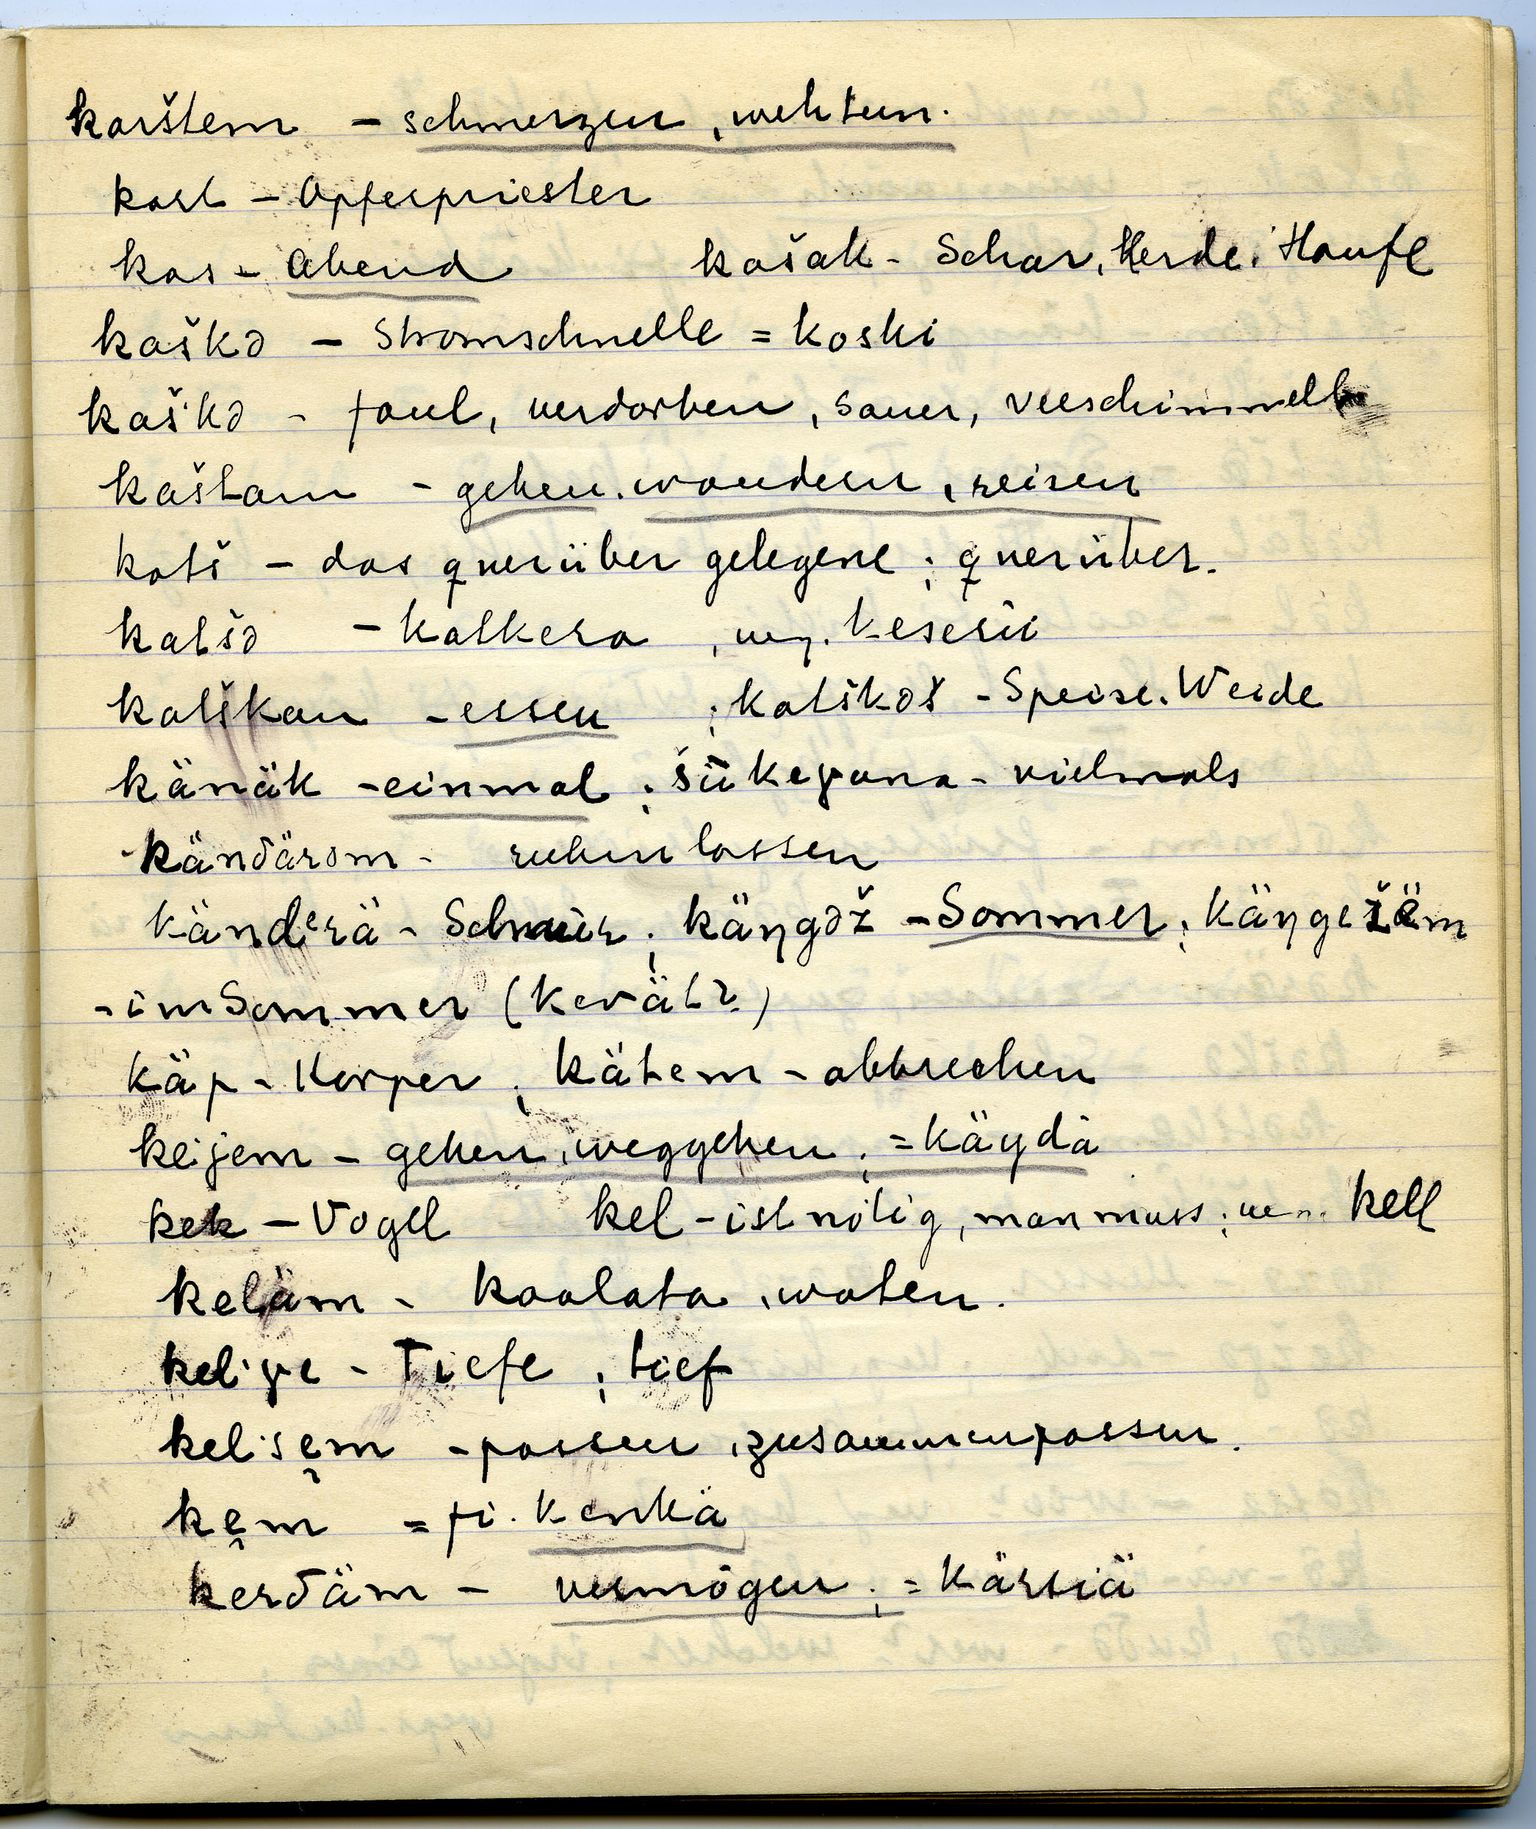 korštem – schmerzen, wehtun.
kart – Opferpriester
kas – Abend košak – Schar, Herde, Haufe
kaškə – Stromschnelle = koski
kaškə – faul, verdorben, sauer, verschimmelt
kaštam – gehen, wandern, reisen
katš – das querüber gelegene; querüber.
katšə – katkera, ung. keserü
katškan – essen ; katškəš – Speise, Weide
känäk – einmal ; šükeγana – vielmals
känδärəm – ruhen lassen
känderä – Schnur ; käŋgəž – Sommer ; käŋgežëm
– im Sommer (kevät?)
käp – Körper ; kätem – abbrechen
keijem – gehen, weggehen ; = käydä
kek – Vogel kel – ist nötig, man muss ; kell
keläm – kaalata, waten.
kelγe – Tiefe ; tief
kelšem – passen, zusammenpassen.
kem = fi. kenkä
kerδäm – vermögen ; = kärsiä